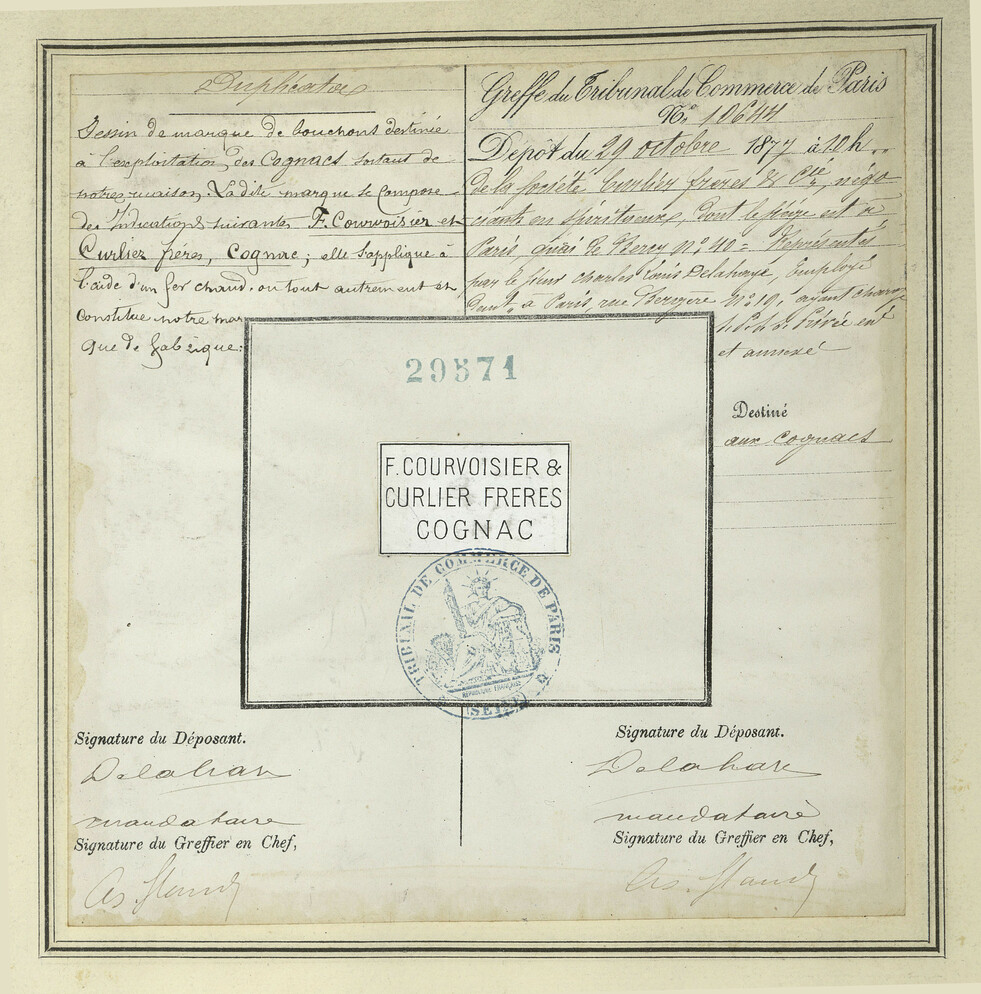 Duplicata
Dessin de marque de bouchons destinée
à l'exploitation des Cognacs sortant de
notre maison. La dite marque se compose
des Indications suivantes F. Courvoisier et
Curlier frères, Cognac; elle s'applique à
l'aide d'un fer chaud. ou tout autrement et
Constitue notre mar
que de fabrique:
Greffe du Tribunal de Commerce de Paris
No. 10644
Dépôt du 29 octobre 1877 à 10 h.
de la Société Curlier frères & Cie, négo
ciants en spiritueux, dont le siège est à
Paris, quai de Bercy no. 40 = Représentés
par le sieur Charles Louis Delahaye, Employé
dt. à Paris, rue Bergère No. 10, ayant charge
et annexé
Destiné
aux cognacs
29571
F. COURVOISIER &
CURLIER FRERES
COGNAC
TRIBUNAL DE COMMERCE DE PARIS
REPUBLIQUE FRANÇAISE
(SEINE)
Signature du Déposant.
mandataire
Signature du Greffier en Chef,
Signature du Déposant.
Delahaye
mandataire
Signature du Greffier en Chef,